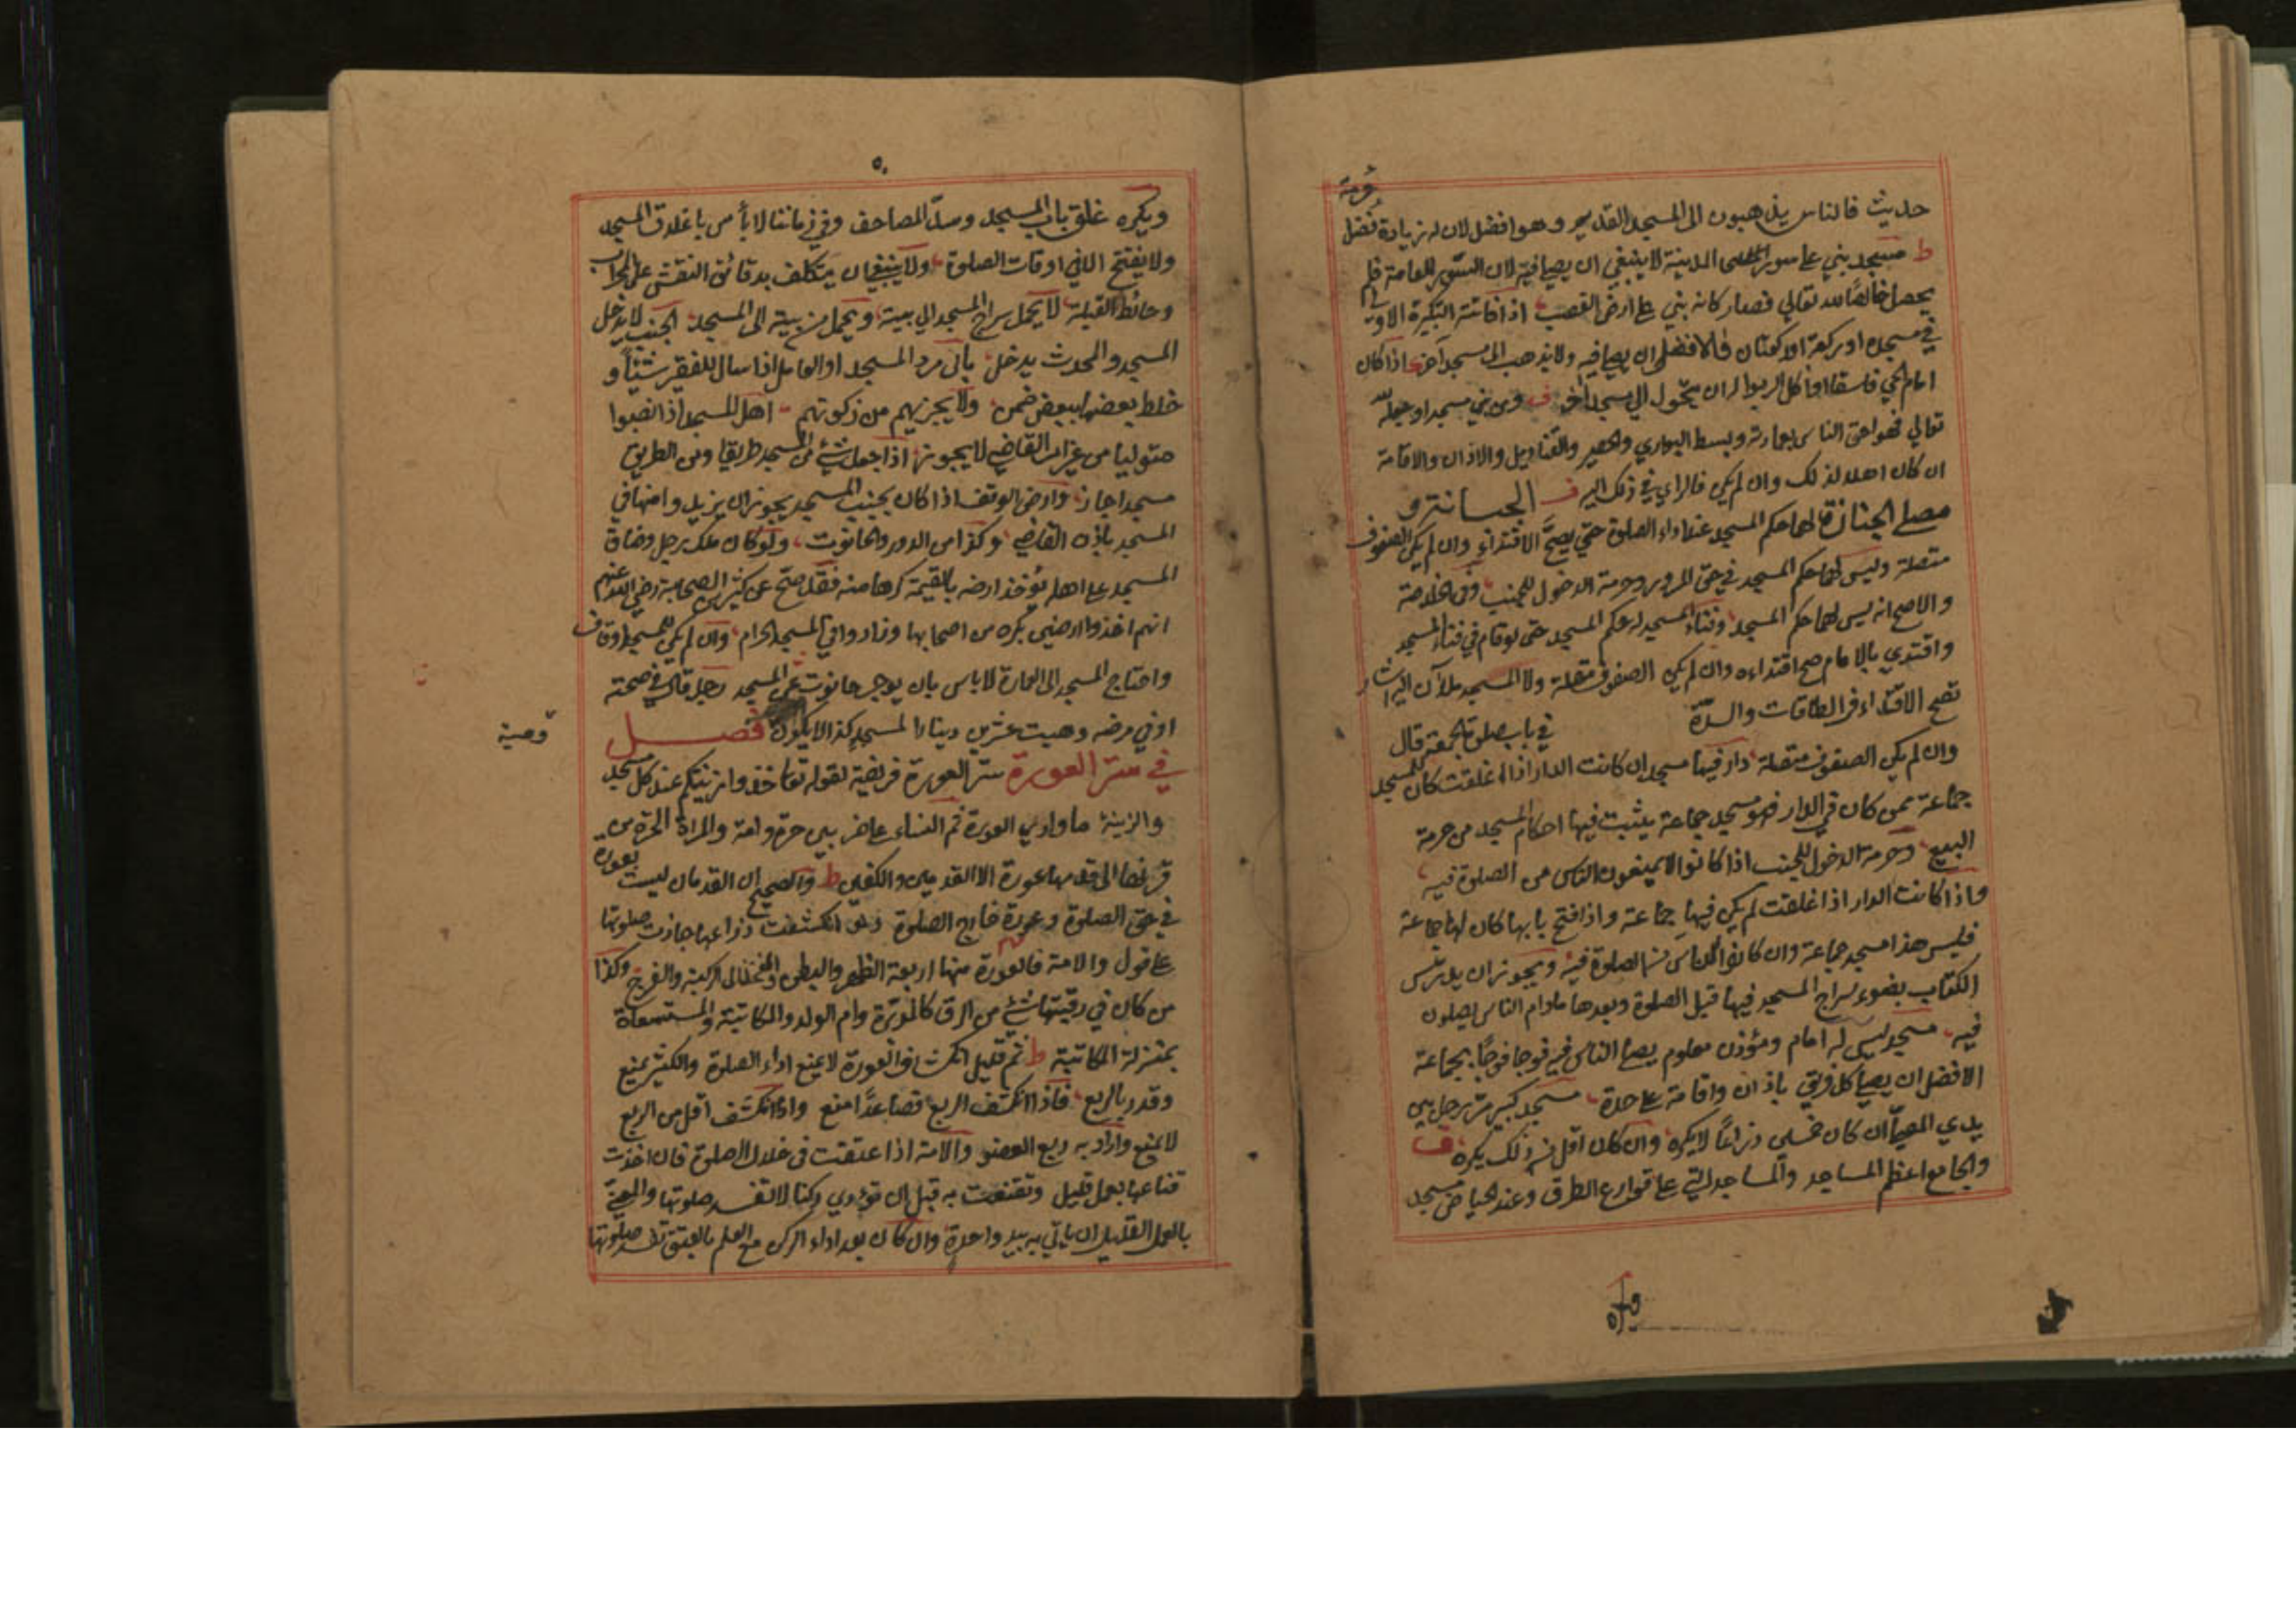 حرمة
حديث فالناس يذهبون الى المسجد القديم وهو افضل لان له زيادة فضل
ط مسجد بني على سور المدينة لا ينبغي ان يصلى فيه لان السور للعامة فلم
يحصل خالصًا لله تعالى فصار كانه بني على ارض الغصب اذا فاتته التكبيرة الاولى
في مسجده او ركعة او ركعتان فالافضل ان يصلي فيه ولا يذهب الى مسجد آخر اذا كان
امام الحي فاسقا او آكل الربوا له ان يتحول الى مسجد آخر ف ومن بني مسجدا وجعله لله
تعالى فهو احق الناس بعمارته وبسط البواري والحصير والقناديل والاذان والاقامة
ان كان اهلا لذلك وان لم يكن فالراي في ذلك اليه ف الحسا نترو
مصلى الجنازة لها حكم المسجد عند اداء الصلوة حتى يصح الاقتداء وان لم يكن الصفوف
متصلة وليس لها حكم المسجد في حق المرور وحرمة الدخول للجنب وفي الخلاصة
والاصح انه ليس لهما حكم المسجد وفناء المسجد له حكم المسجد حتى لو قام في فناء المسجد
واقتدي بالامام صح اقتداءه وان لم يكن الصفوف متصلة ولا المسجد ملآن اليه اشار
في باب صلوة الجمعة قال تصح الاقتداء في الطاقات والسدّة
وان لم يكن الصفوف متصلة دار فيها مسجد ان كانت الدار اذا اغلقت كان للمسجد
جماعة ممن كان في الدار فهو مسجد جماعة يثبت فيها احكام المسجد من حرمة
البيع وحرمة الدخول للجنب اذا كانوا لا يمنعون الناس من الصلوة فيه
واذا كانت الدار اذا غلقت لم يكن فيها جماعة واذا فتح بابها كان لها جماعة
فليس هذا مسجد جماعة وان كانوا الناس الصلوة فيه ويجوز ان يدرس
الكتاب بضوء سراج المسجد فيها قبل الصلوة وبعدها مادام الناس يصلون
فيه مسجد ليس له امام ومؤذن معلوم يصلي الناس فيه فوجا فوجًا بجماعة
الافضل ان يصلي كل فريق باذان واقامة على حدة مسجد كبير مر رجل بين
يدي المصلي ان كان خمسين ذراعًا لا يكره وان كان اقل من ذلك يكره ف
والجامع اعظم المساجد والمساجد التي على قوارع الطرق وعند الحياض مسجد
٥٠
ويكره غلق باب المسجد وسدّ المصاحف وفي زماننا لا بأس باغلاق المسجد
ولا يفتح الا في اوقات الصلوة ولا ينبغي ان يتكلف بدقائق النقش على المحراب
وحائط القبلة لا يحمل سراج المسجد الى بيته ويحمل من بيته الى المسجد الجنب لا يدخل
المسجد والمحدث يدخل المسجد او العامل اذا سال للفقير شيئًا و
خلط بعضها ببعض ضمن ولا يجزيهم من زكوتهم اهل المسجد اذا نصبوا
متوليا من غير امر القاضي لا يجوز اذا جعل شئ من المسجد طريقا ومن الطريق
مسجدا جاز وارض الوقف اذا كان بجنب المسجد يجوز ان يزيدوا منها في
المسجد باذن القاضي وكذا من الدور والحانوت ولو كان ملك رجل وضاق
المسجد على اهله يؤخذ ارضه بالقيمة كرها منه فقد صح عن كثير من الصحابة رضي الله عنهم
انهم اخذوا ارضين بكره من اصحابها وزادوا في المسجد الحرام وان لم يكن للمسجد اوقاف
واحتاج المسجد الى العمارة لا باس بان يوجر حانوت على المسجد رجل قال في صحته
او في مرضه وهبت عشرين دينارا لمسجد كذا لا يكون فصل
وصية
في ستر العورة ستر العورة فريضة لقوله تعا خذوا زينتكم عند كل مسجد
والزينة ما وارى العورة ثم النساء على ضربين حرة وامة والمراة الحرة من
قرنها الى قدمها عورة الا القدمين والكفين ط والصحيح ان القدمان ليست بعورة
في حق الصلوة وعورة خارج الصلوة ولو انكشفت ذراعها جازت صلوتها
على قول والامة فالعورة منها اربعة الظهر والبطن والفخذ الى الركبة والفرج وكذا
من كان في رقبتها شئ من الرق كالمدبرة وام الولد والمكاتبة والمستسعاة
بمنزلة المكاتبة ط ثم قليل انكشاف العورة لا يمنع اداء الصلوة والكثير يمنع
وقدر بالربع فاذا انكشف الربع فصاعدًا منع واذا انكشف اقل من الربع
لا يمنع واراد به ربع العضو والامة اذا عتقت في خلال الصلوة فان اخذت
قناعها بعمل قليل وتقنعت به قبل ان تؤدي ركنا لا تفسد صلوتها والمعنى
بالعمل القليل ان ياتي به بيد واحدة وان كان بعد اداء الركن مع العلم بالعتق تفسد صلوتها